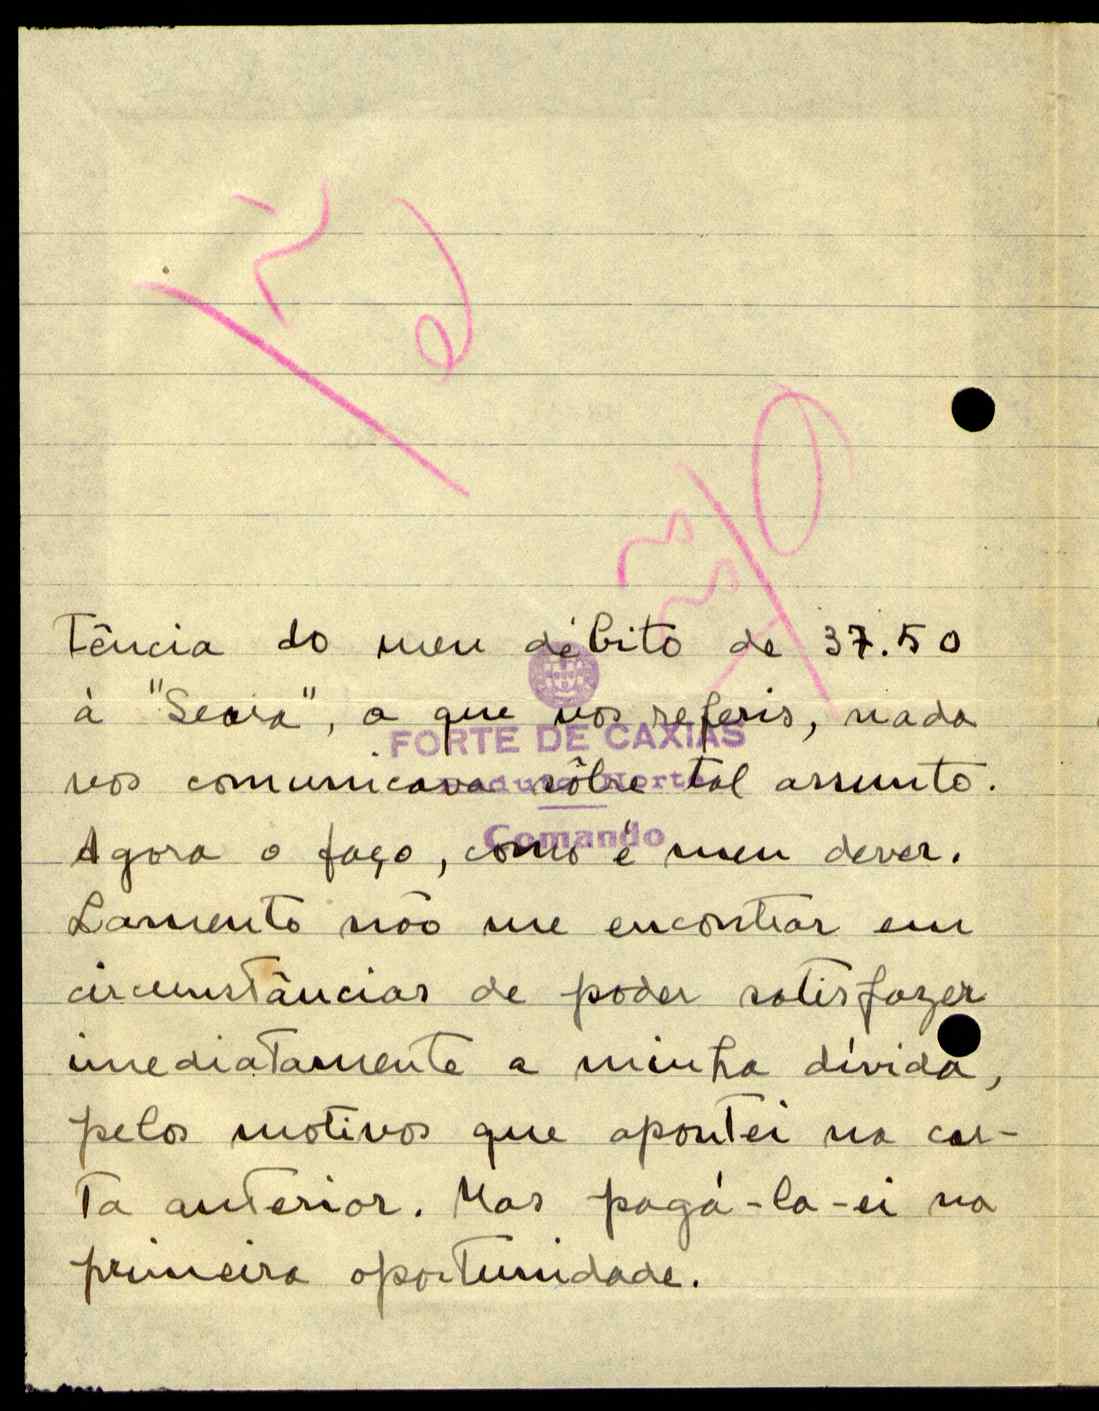 tência do meu débito de 37.50
à "Seara", a que vos referis, nada
vos comunicava sôbre tal assunto.
Agora o faço, como é meu dever.
Lamento não me encontrar em
circunstâncias de poder satisfazer
imediatamente a minha dívida,
pelos motivos que apontei na car-
ta anterior. Mas pagá-la-ei na
primeira oportunidade.
FORTE DE CAXIAS
Reduto Norte
Comando